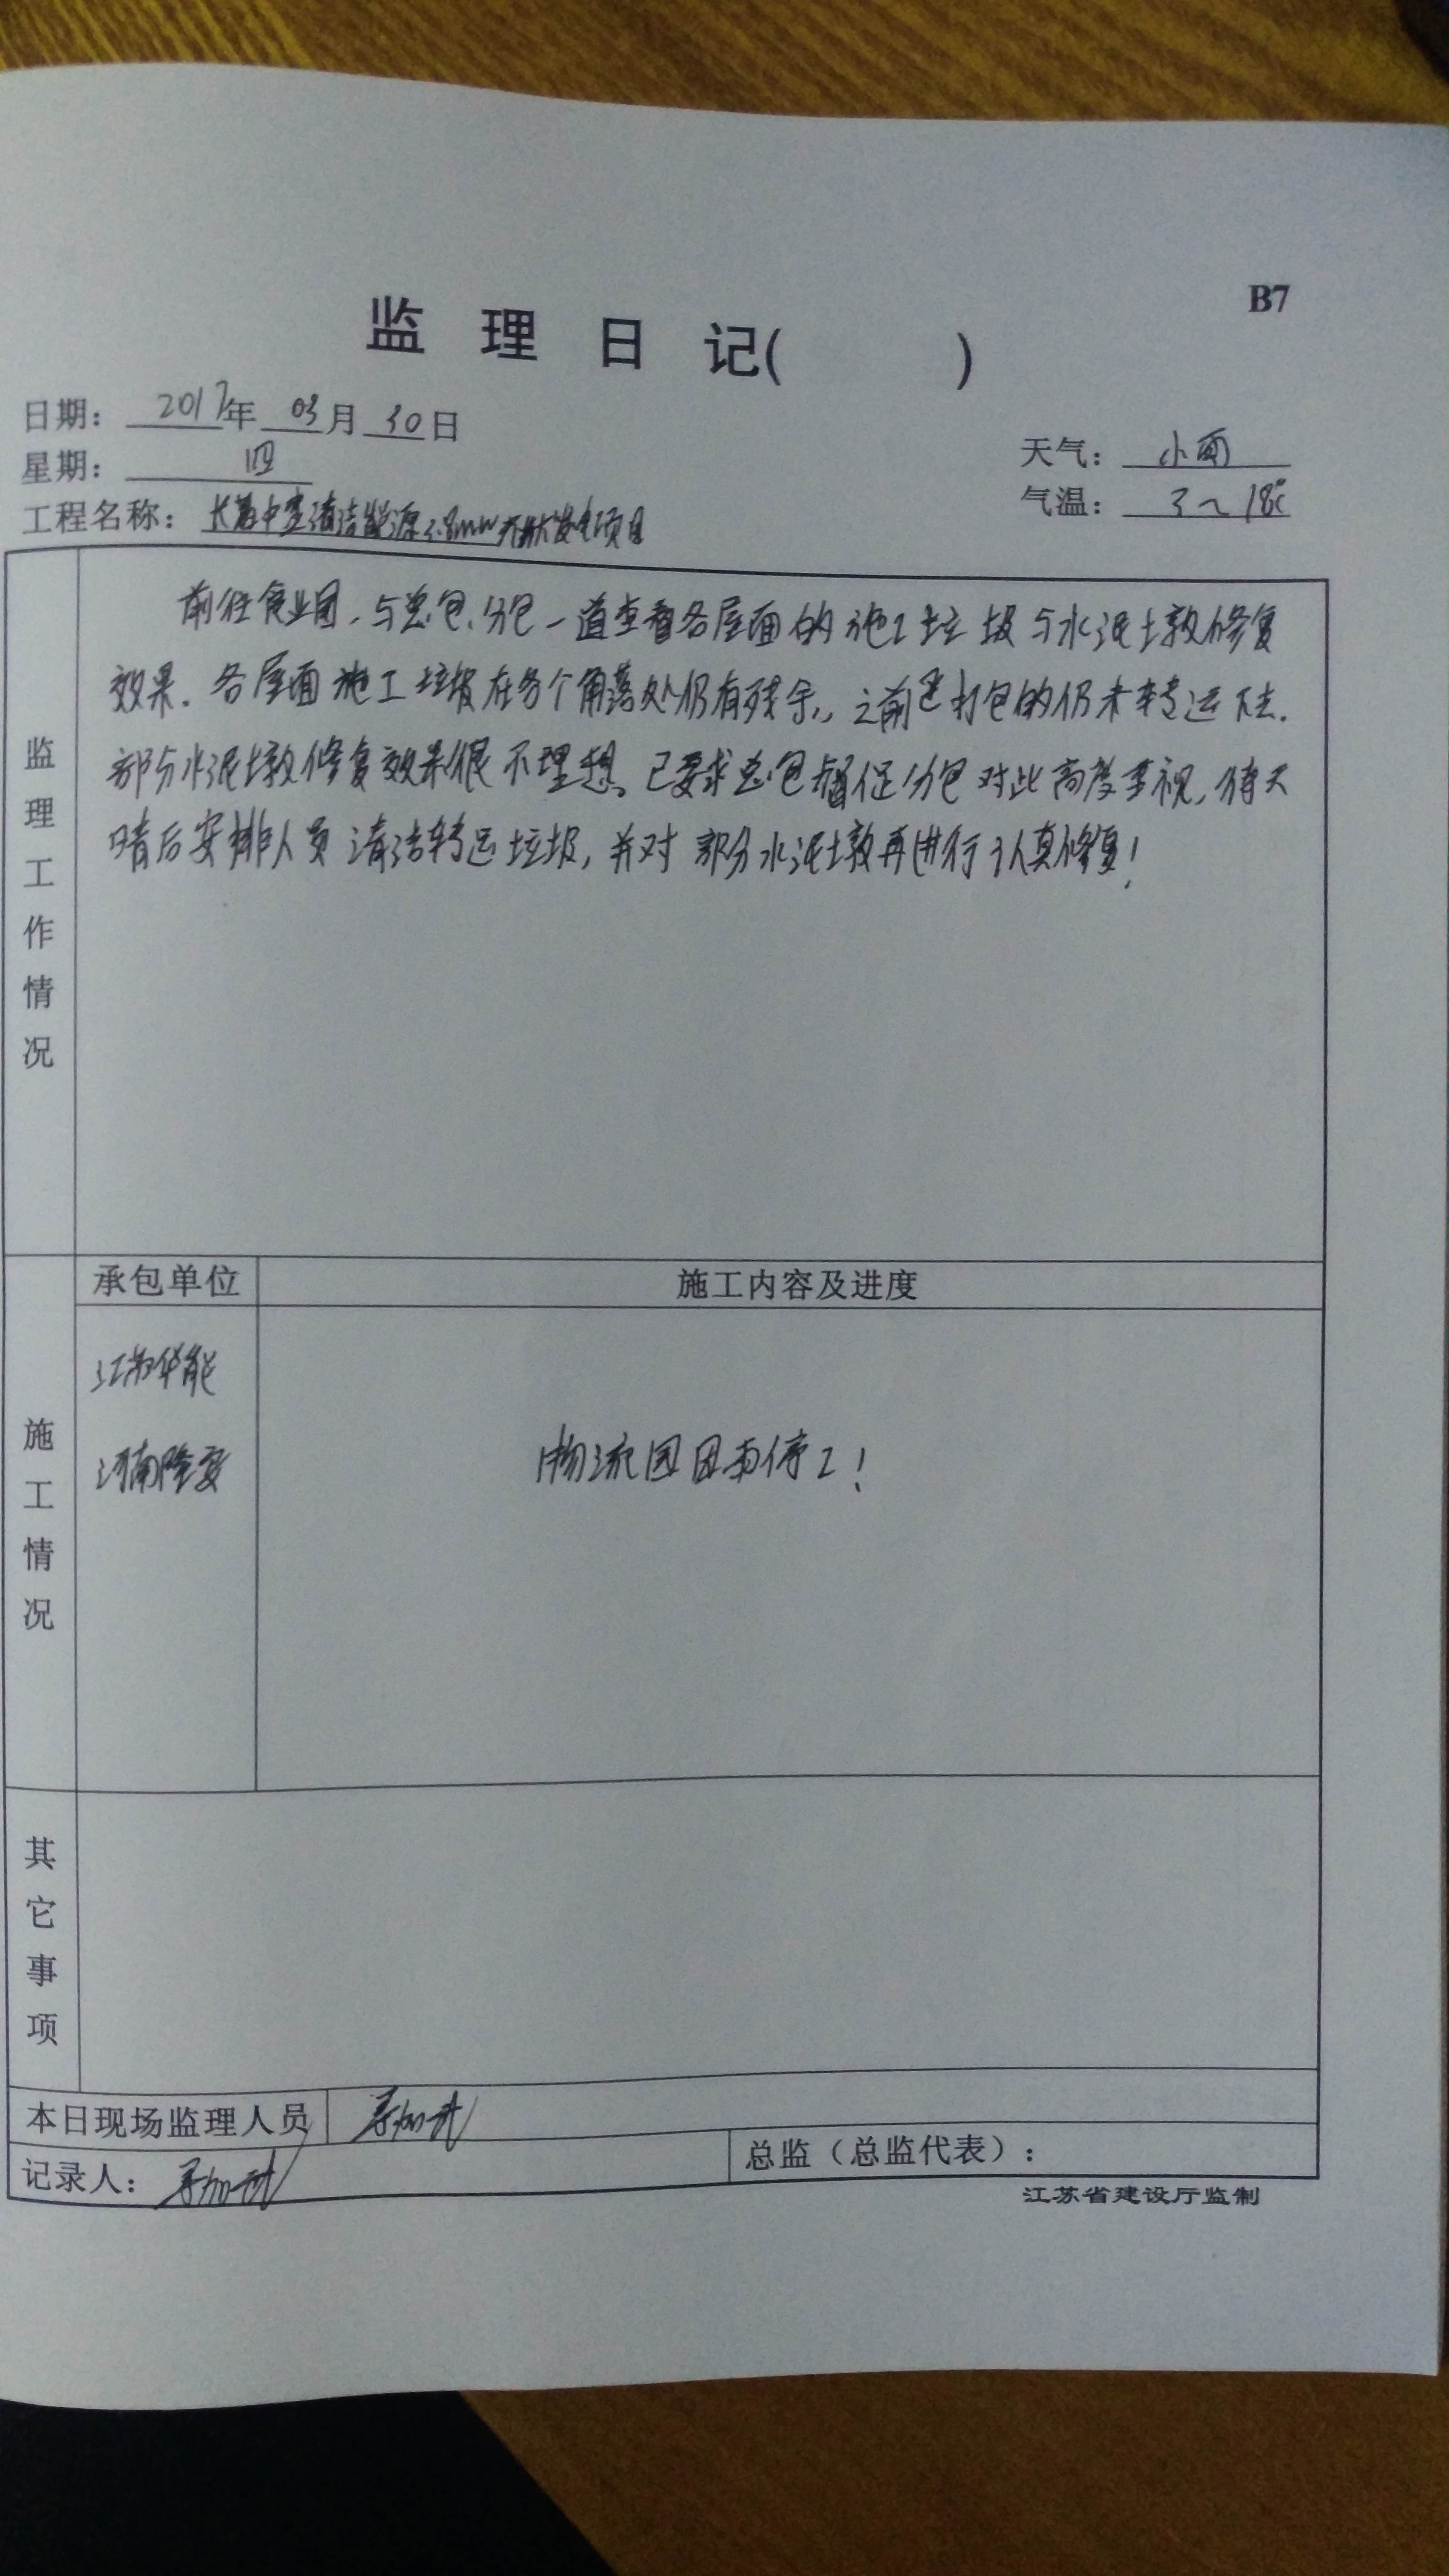 B7
监 理 日 记( )
日期： 2017年 03月 30日
星期： 四
天气： 小雨
气温： 3～18℃
工程名称： 清洁能源 发电项目
监理工作情况
前往食业园，与总包、分包一道查看各屋面的施工垃圾与水泥墩修复
效果。各屋面施工垃圾在各个角落处仍有残余，之前已打包的仍未转运下去。
部分水泥墩修复效果很不理想。已要求总包督促分包对此高度重视，待天
晴后安排人员清洁转运垃圾，并对部分水泥墩再进行认真修复！
承包单位
施工内容及进度
施工情况
江苏华能
河南隆安
物流园因雨停工！
其它事项
本日现场监理人员
记录人：
总监（总监代表）：
江苏省建设厅监制